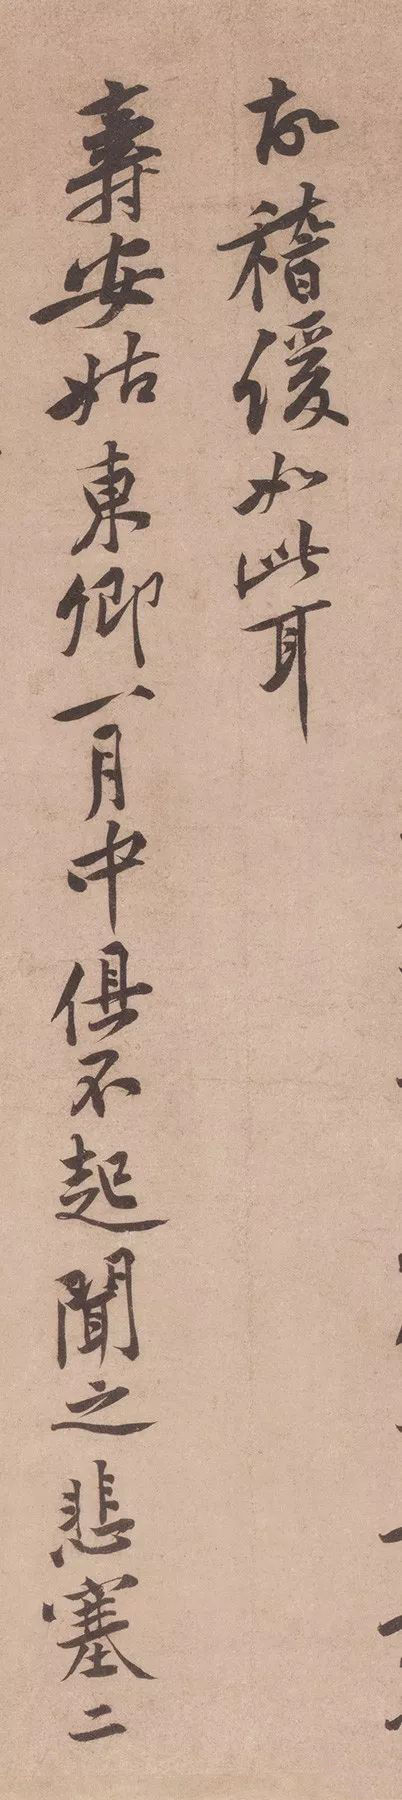 故稽缓如此耳
壽安姑東卿一月中俱不起聞之悲塞二